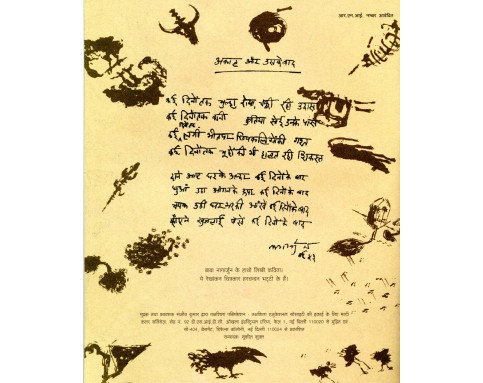 आर.एन.आई. नम्बर आवेदित
अकाल और उसके बाद
कई दिनों तक चूल्हा रोया, चक्की रही उदास
कई दिनों तक कानी कुतिया सोई उनके पास
कई दिनों तक लगी भीत पर छिपकलियों की गश्त
कई दिनों तक चूहों की भी हालत रही शिकस्त
दाने आए घर के अन्दर कई दिनों के बाद
धुआँ उठा आँगन के ऊपर कई दिनों के बाद
चमक उठी घर भर की आँखें कई दिनों के बाद
कौए ने खुजलाई पाँखें कई दिनों के बाद
नागार्जुन
बाबा नागार्जुन के हाथों लिखी कविता।
ये रेखांकन चित्रकार भट्टी के हैं।
मुद्रक तथा प्रकाशक संजीव कुमार द्वारा
नई दिल्ली 110020 से मुद्रित एवं
नई दिल्ली 110024 से प्रकाशित
सम्पादक: सुशील शुक्ल